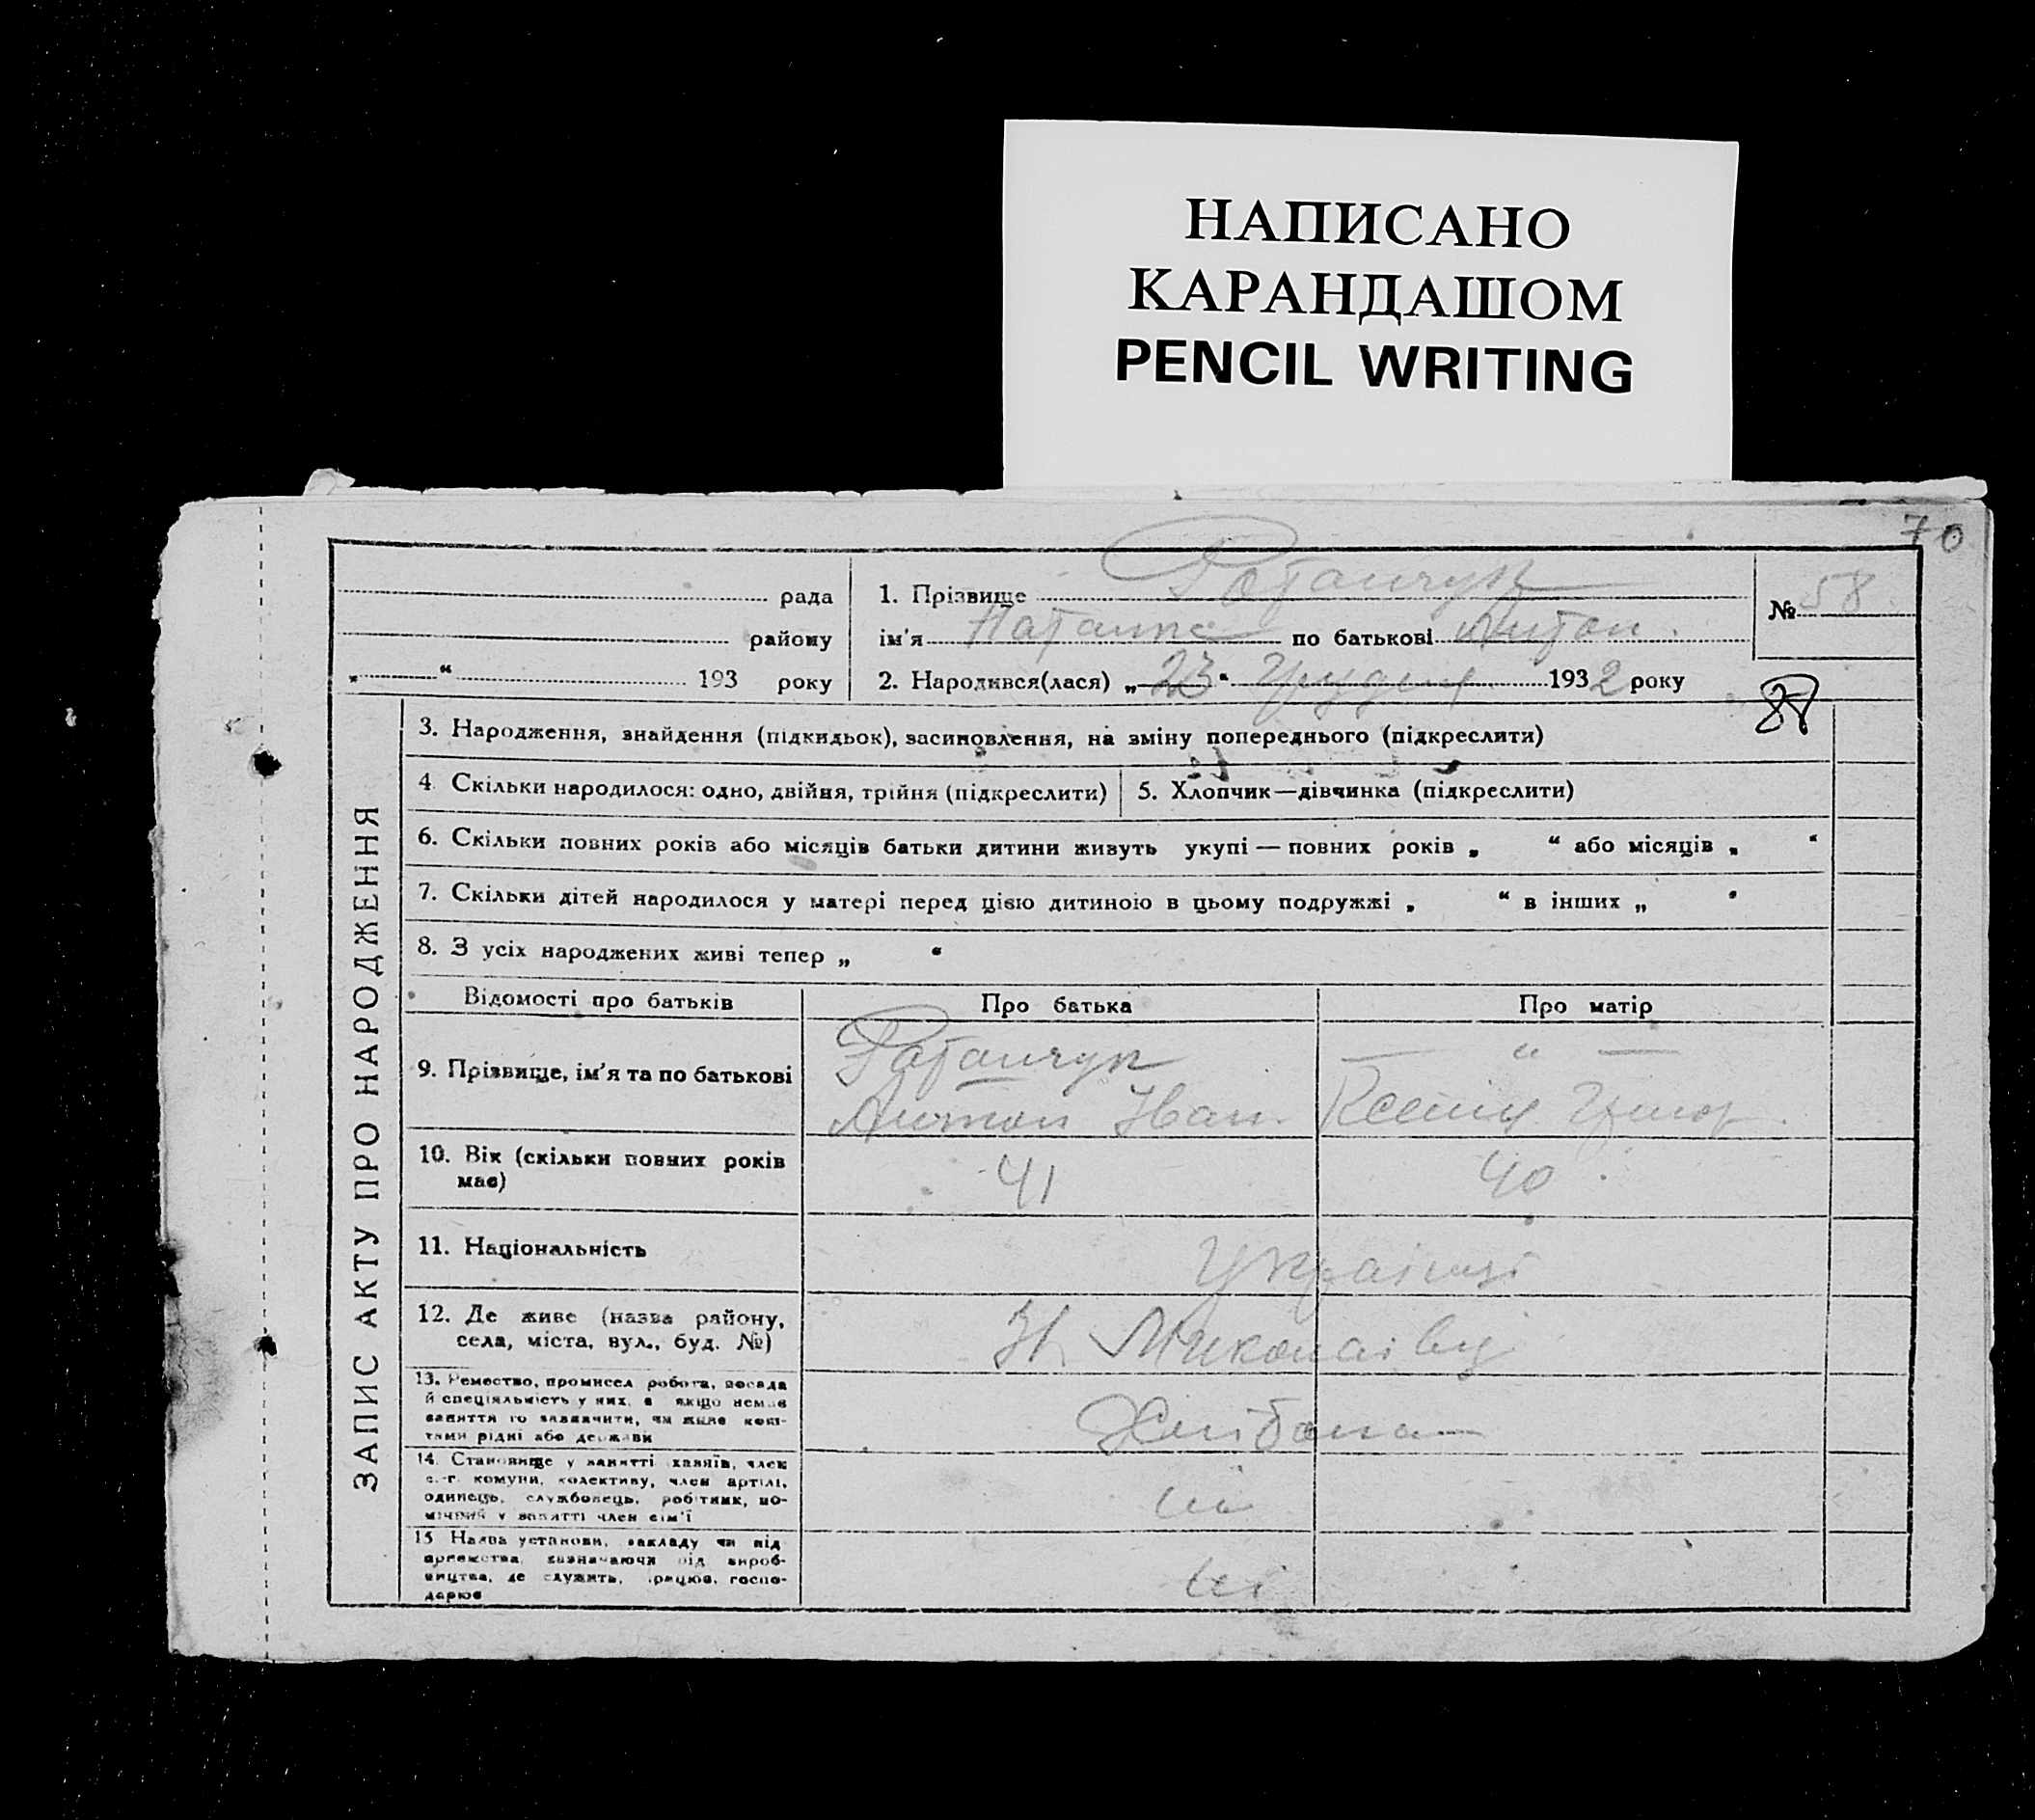 НАПИСАНО
КАРАНДАШОМ
PENCIL WRITING
70
рада
району
„ “ 193 року
1. Прізвище Ротанчук
ім'я Наталка по батькові Антон.
2. Народився(лася) „23“ Грудня 1932 року
№ 58
ЗАПИС АКТУ ПРО НАРОДЖЕННЯ
3. Народження, знайдення (підкидьок), засиновлення, на зміну попереднього (підкреслити)
4. Скільки народилося: одно, двійня, трійня (підкреслити)
5. Хлопчик—дівчинка (підкреслити)
6. Скільки повних років або місяців батьки дитини живуть укупі — повних років „ “ або місяців „ “
7. Скільки дітей народилося у матері перед цією дитиною в цьому подружжі „ “ в інших „ “
8. З усіх народжених живі тепер „ “
Відомості про батьків Про батька Про матір
9. Прізвище, ім'я та по батькові
Ротанчук — „ —
Антон Іван. Ксенія Григор.
10. Вік (скільки повних років має) 41 40
11. Національність Українці
12. Де живе (назва району,
села, міста, вул., буд. №)
Миколаівці
13. Ремество, промисел робота, посада
й спеціяльність у них, а якщо немає
заняття то зазначити, чи живе кош-
тами рідні або держави
Хлібороб
14. Становище у занятті хазяїв, член
с.-г. комуни, колективу, член артілі,
одинець, службовець, робітник, по-
мічний у занятті член сім'ї
15 Назва установи, закладу чи під
приємства, зазначаючи рід вироб-
ництва, де служить, працює, госпо-
дарює